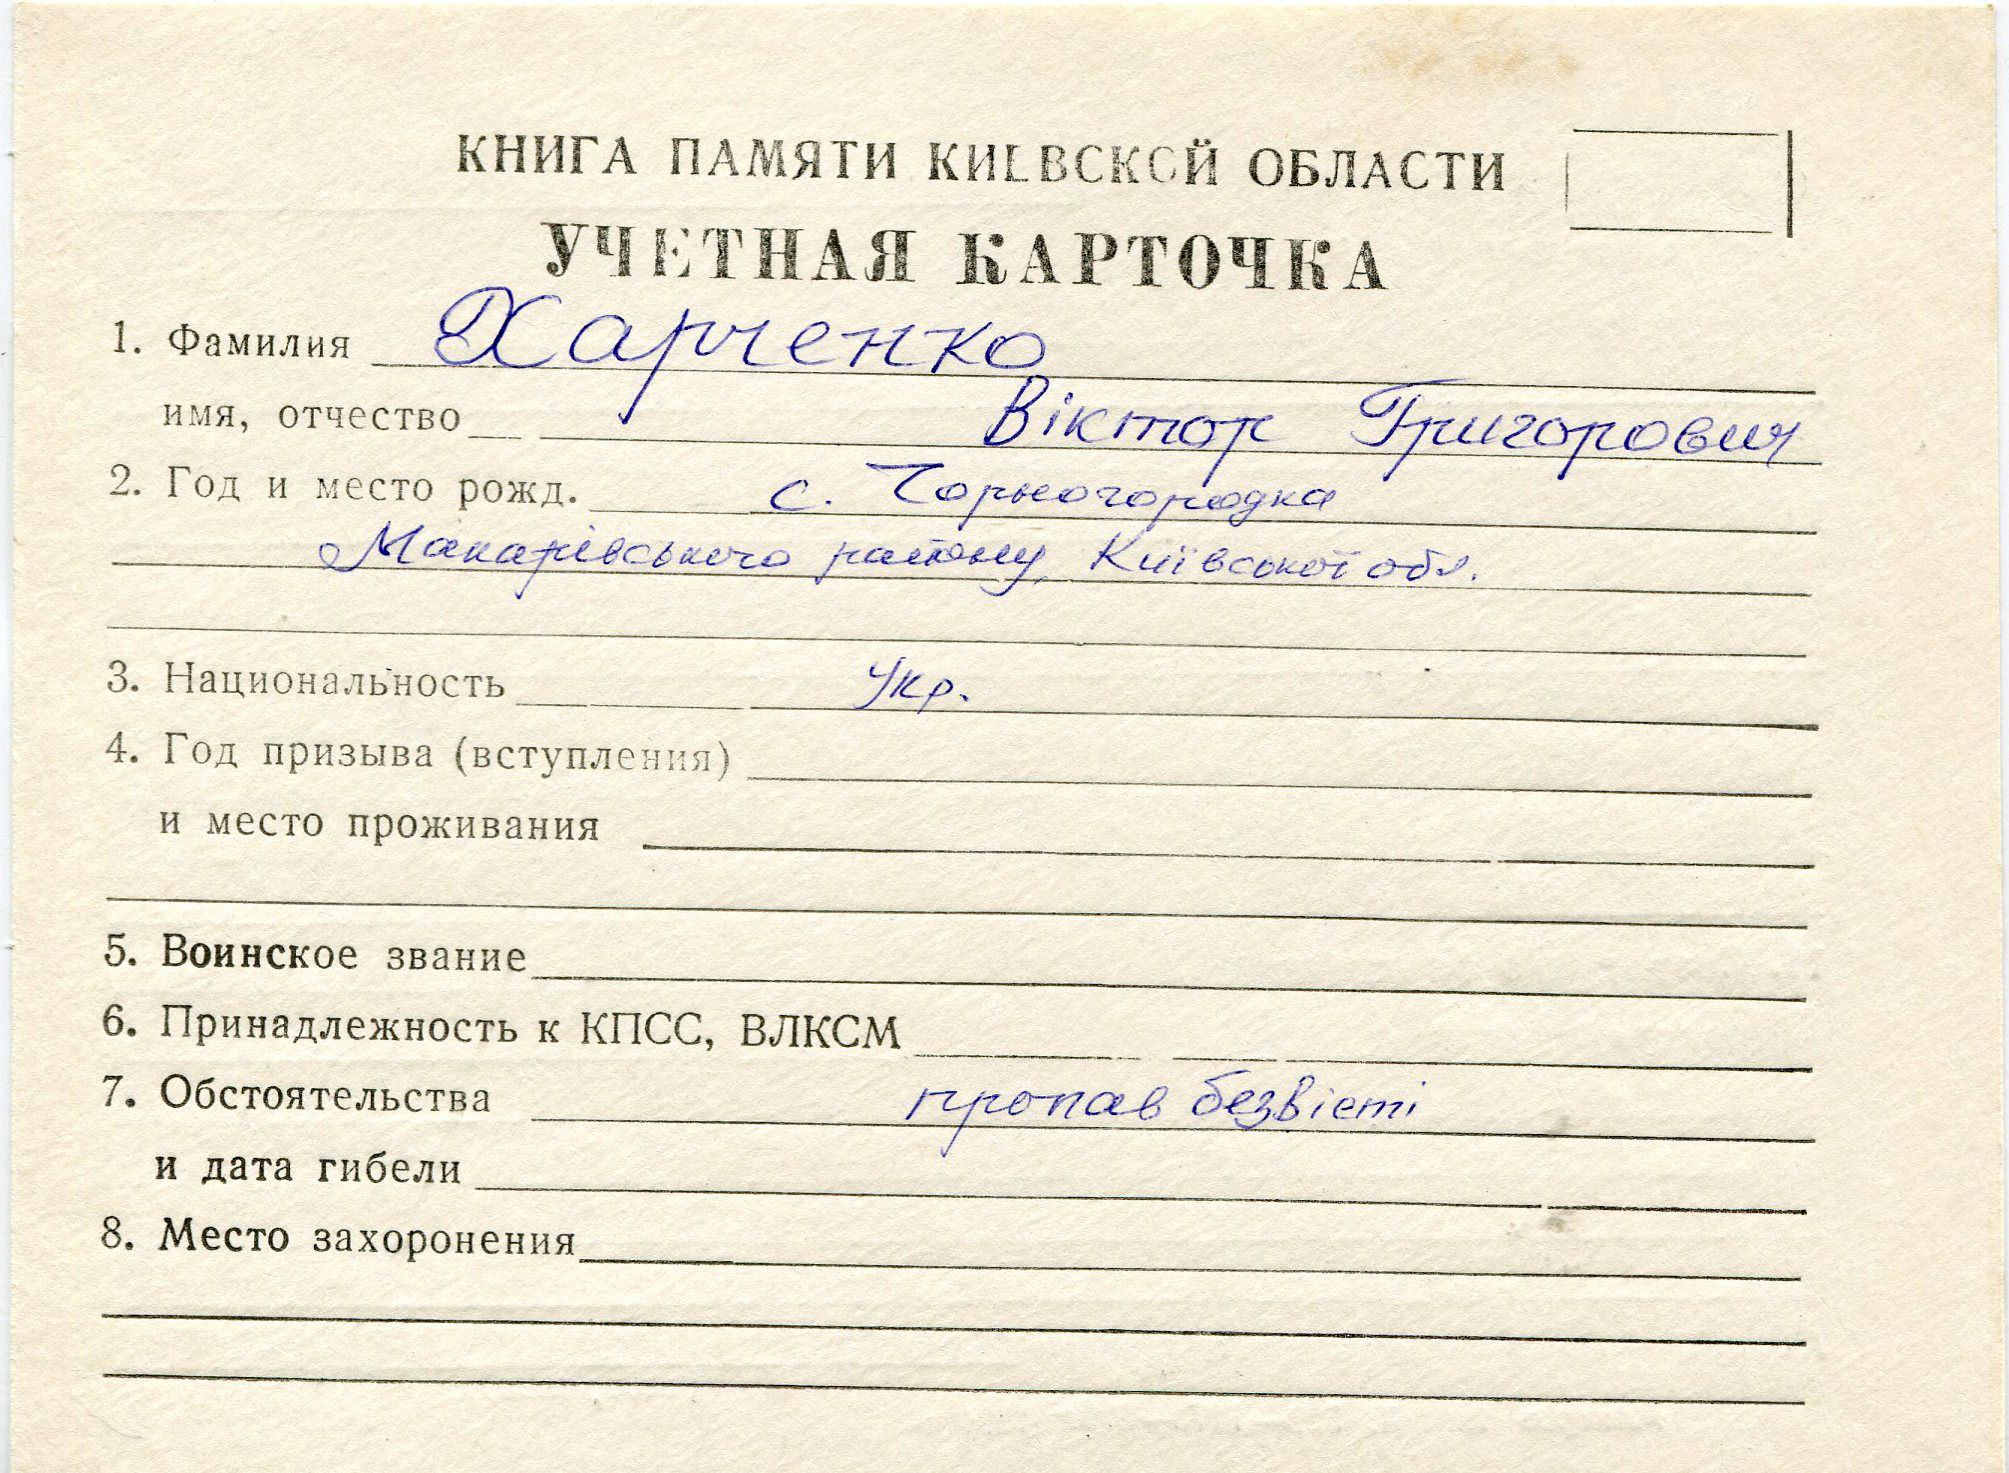 КНИГА ПАМЯТИ КИЕВСКОЙ ОБЛАСТИ
УЧЕТНАЯ КАРТОЧКА
1. Фамилия Харченко
имя, отчество Віктор Григорович
2. Год и место рожд. с. Чорногородка
Макарівського району, Київської обл.
3. Национальность Укр.
4. Год призыва (вступления)
и место проживания
5. Воинское звание
6. Принадлежность к КПСС, ВЛКСМ
7. Обстоятельства пропав безвісті
и дата гибели
8. Место захоронения